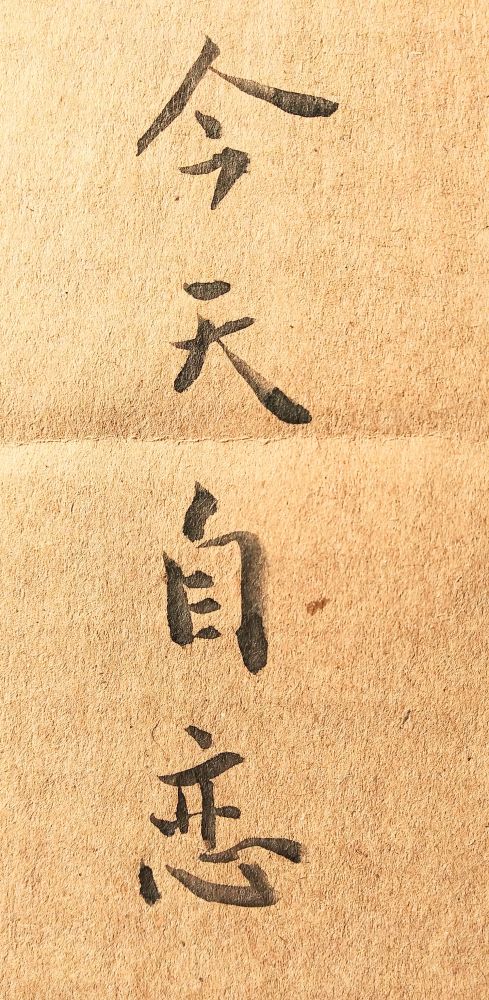 今天自恋